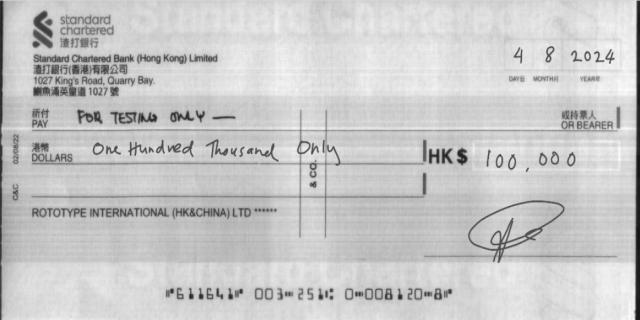 standard
chartered
渣打銀行
Standard Chartered Bank (Hong Kong) Limited
渣打銀行(香港)有限公司
1027 King's Road, Quarry Bay.
鰂魚涌英皇道 1027 號
4 8 2024
DAY日 MONTH月 YEAR年
祈付
PAY FOR TESTING ONLY —
或持票人
OR BEARER
港幣
DOLLARS One Hundred Thousand Only
HK$ 100,000
& CO.
C&C 02/08/22
ROTOTYPE INTERNATIONAL (HK&CHINA) LTD ******
⑈611641⑈ 003⑉251⑆ 0⑉008120⑉8⑈